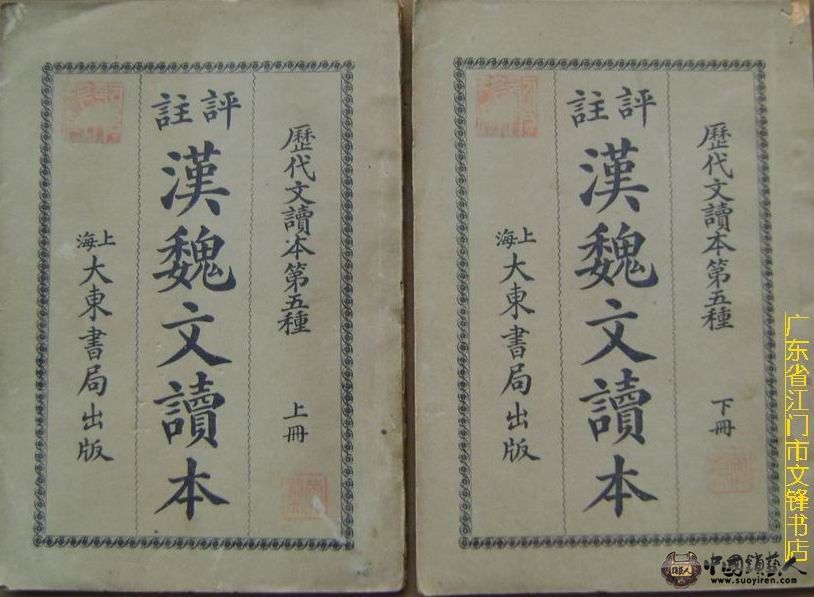 歷代文讀本第五種
上冊
評註
漢魏文讀本
上海大東書局出版
歷代文讀本第五種
下冊
評註
漢魏文讀本
上海大東書局出版
广东省江门市文锋书店
中國鎖藝人
www.suoyiren.com